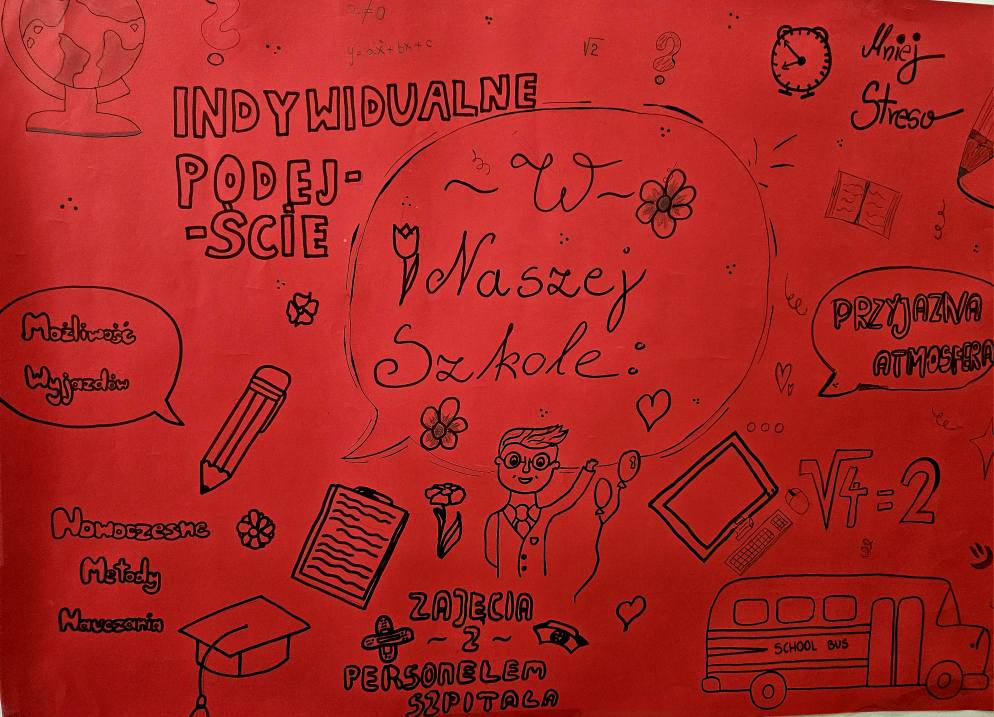 a≠0
y=ax²+bx+c
√2
Mniej
Stresu
INDYWIDUALNE
PODEJ-
-ŚCIE
~ W ~
Naszej
Szkole:
Możliwość
Wyjazdów
PRZYJAZNA
ATMOSFERA
√4=2
Nowoczesne
Metody
Nauczania
ZAJĘCIA
~ Z ~
PERSONELEM
SZPITALA
SCHOOL BUS